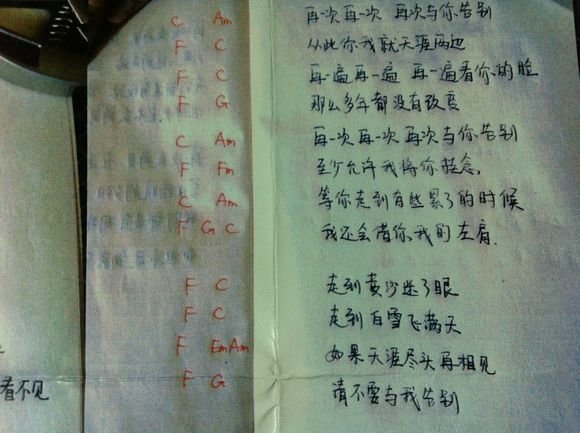 C Am 再一次再一次 再次与你告别
F C 从此你我就天涯两边
F C 再一遍再一遍 再一遍看你的脸
F G 那么多年都没有改变
C Am 再一次再一次再次与你告别
F Fm 至少允许我将你挂念,
C Am 等你走到有些累了的时候
F G C 我还会借你我的左肩.
F C 走到黄沙迷了眼
F C 走到白雪飞满天
F Em Am 如果天涯尽头再相见
F G 请不要与我告别
看不见